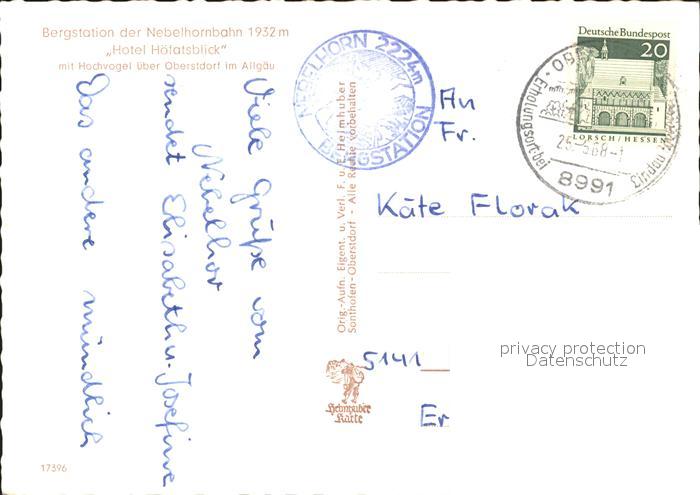 Bergstation der Nebelhornbahn 1932 m
„Hotel Höfatsblick"
mit Hochvogel über Oberstdorf im Allgäu
Viele Grüße vom
Nebelhor
sendet Elisabeth u. Josefine
Das andere mündlich
NEBELHORN 2224m
BERGSTATION
Orig.-Aufn. Eigent. u. Verl. F. u. E. Heimhuber
Sonthofen-Oberstdorf - Alle Rechte vorbehalten
Heimhuber
Karte
17396
Deutsche Bundespost
20
LORSCH/HESSEN
Erholungsort bei
Lindau
8991
An
Fr.
Käte Florak
5141
Er
privacy protection
Datenschutz